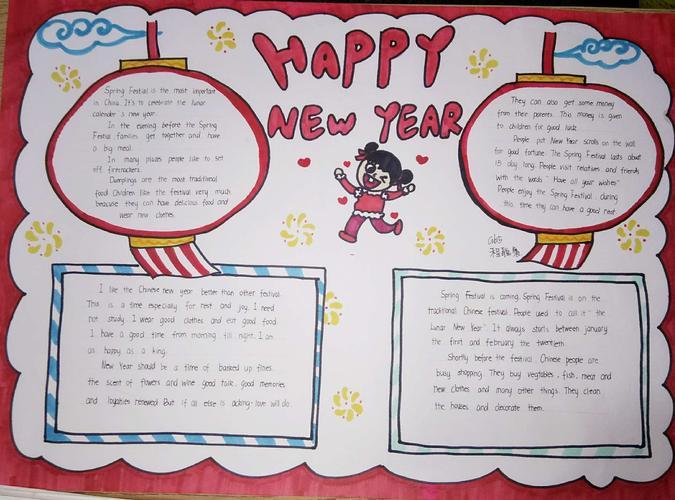 HAPPY
NEW YEAR
Spring Festival is the most important
in China. It's to celebrate the lunar
calender's new year.
In the evening before the Spring
Festival families get together and have
a big meal.
In many places people like to set
off firecrackers.
Dumplings are the most traditional
food. Children like the festival very much,
because they can have delicious food and
wear new clothes.
They can also get some money
from their parents. This money is given
to children for good luck.
People put New Year scrolls on the wall
for good fortune. The Spring Festival lasts about
15 day long. People visit relatives and friends
with the words "Have all your wishes".
People enjoy the Spring Festival, during
this time they can have a good rest.
I like the Chinese new year better than other festival.
This is a time especially for rest and joy. I need
not study. I wear good clothes and eat good food.
I have a good time from morning till night. I am
as happy as a king.
New Year should be a time of banked up fires,
the scent of flowers and wine good talk, good memories
and loyalties renewed. But if all else is lacking - love will do.
Spring Festival is coming. Spring Festival is on the
traditional Chinese festival. People used to call it "the
lunar New Year". It always starts between january
the first and february the twentieth.
Shortly before the festival, Chinese people are
busy shopping. They buy vegetables, fish, meat and
new clothes and many other things. They clean
the houses and decorate them.